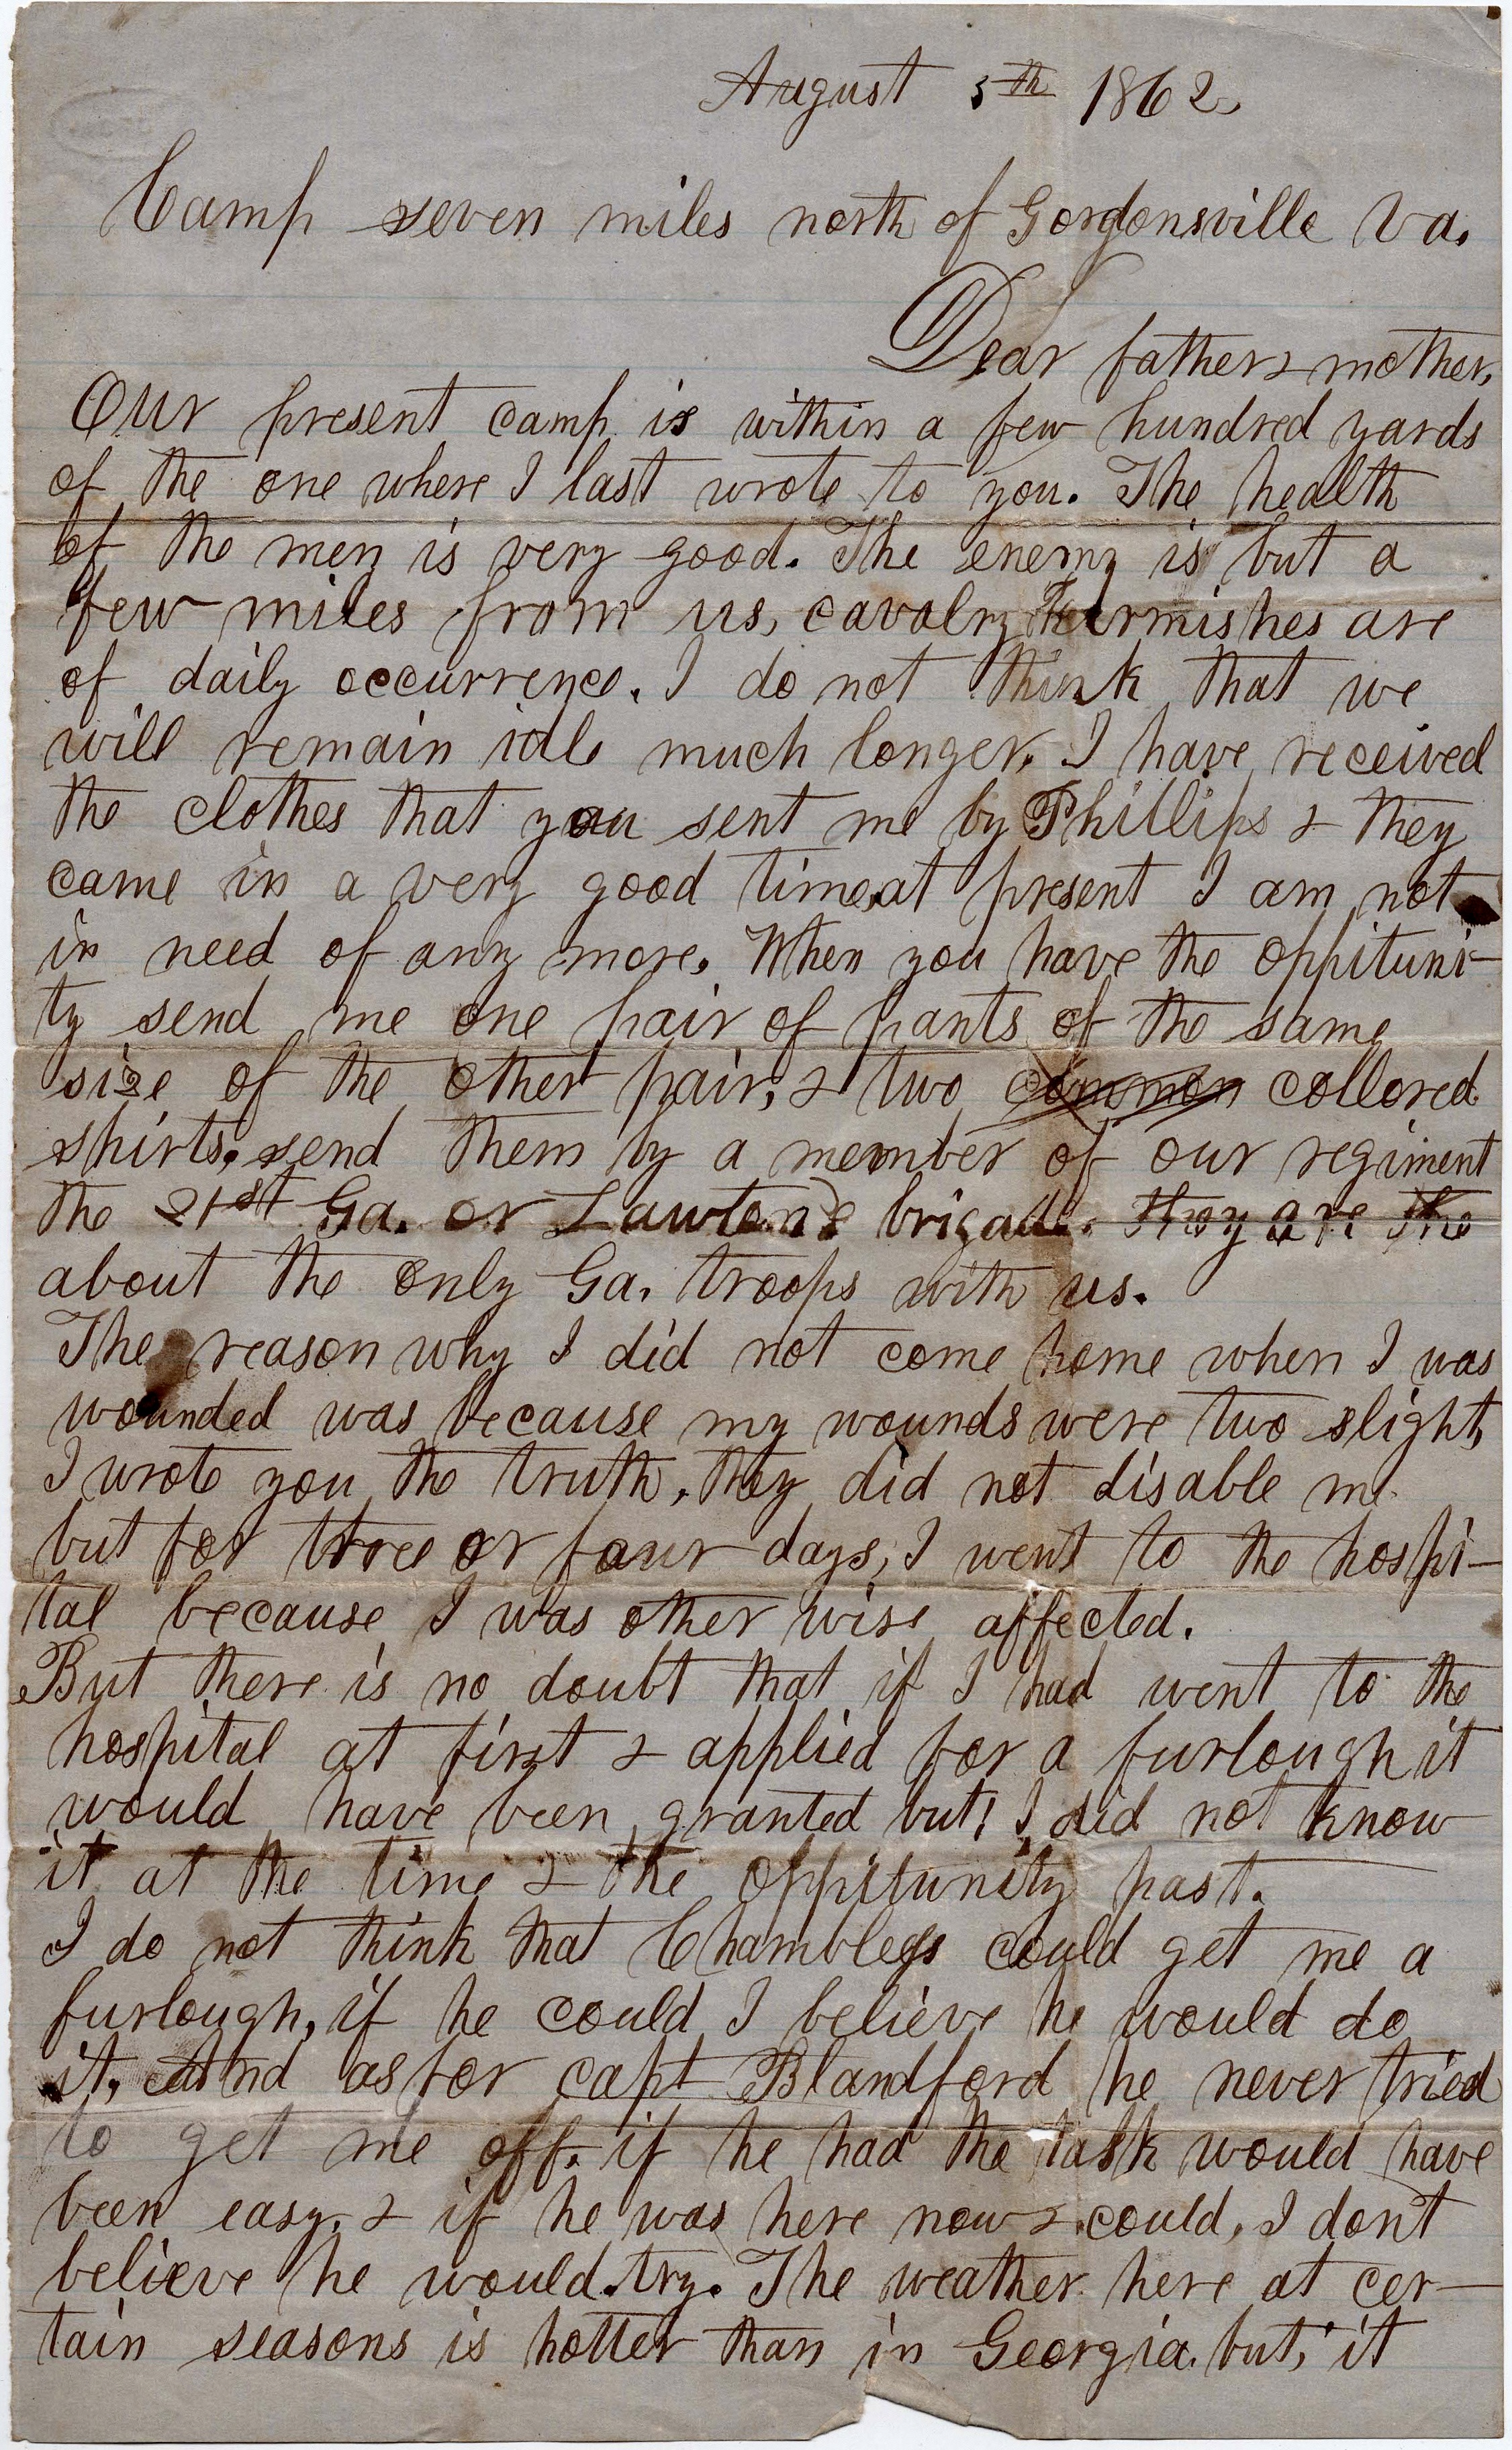 August 5th 1862
Camp seven miles north of Gordonsville Va.
Dear father & mother,
Our present camp is within a few hundred yards
of the one where I last wrote to you. The health
of the men is very good. The enemy is but a
few miles from us, cavalry skirmishes are
of daily occurrence. I do not think that we
will remain idle much longer. I have received
the clothes that you sent me by Phillips & they
came in a very good time, at present I am not
in need of any more. When you have the oppituni-
ty send me one pair of pants of the same
size of the other pair, & two common collored
shirts. send them by a member of our regiment
the 21st Ga. or Lawton's brigade. they are the
about the only Ga. troops with us.
The reason why I did not come home when I was
wounded was because my wounds were two slight,
I wrote you the truth, they did not disable me
but for three or four days, I went to the hospi-
tal because I was other wise affected.
But there is no doubt that if I had went to the
hospital at first & applied for a furlough it
would have been granted but, I did not know
it at the time & the oppitunity past.
I do not think that Chambless could get me a
furlough, if he could I believe he would do
it, And as for capt Blandford he never tried
to get me off. if he had the task would have
been easy. & if he was here now & could, I dont
believe he would try. The weather here at cer-
tain seasons is hotter than in Georgia. but, it